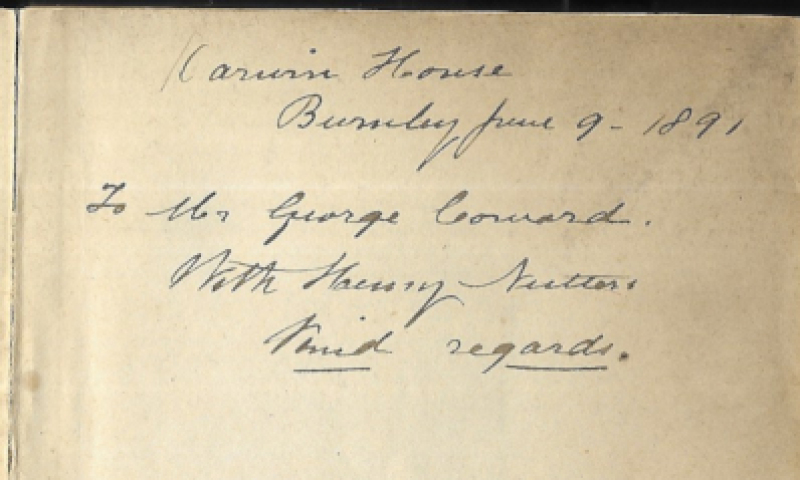 Carwin House
Burnley June 9 - 1891
To Mr George Coward.
With Henry Nutters
Kind regards.